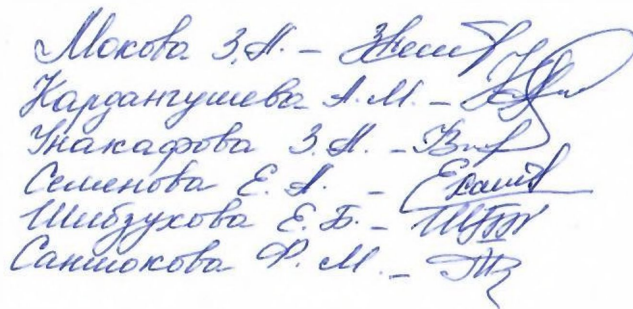 Мокова З.А. –
Кардангушева А.М. –
Унакафова З.А. –
Семенова Е.А. –
Шибзухова Е.Б. –
Саншокова Ф.М. –